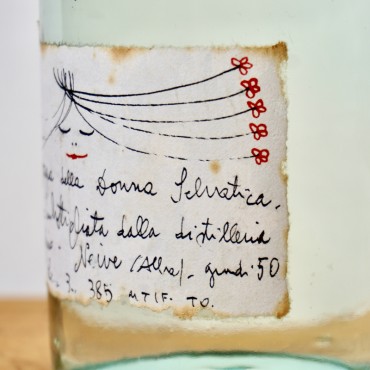 della Donna Selvatica.
dalla distilleria
Neive (Alba). gradi 50
3. 385 MTIF. TO.